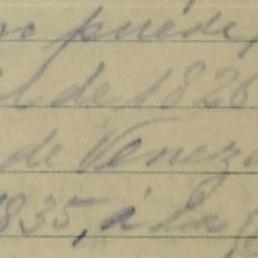 no puede,
l de 1826
de Venez
1835, á la